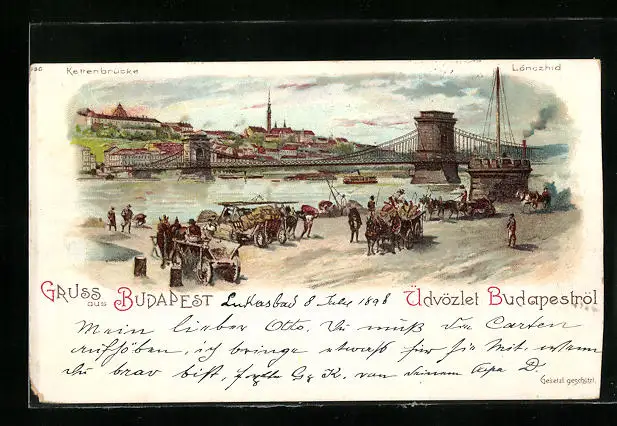 Kettenbrücke Lánczhid
GRUSS aus BUDAPEST Lukasbad 8 1898 Üdvözlet Budapestről
Mein lieber Otto. Du muß die Carten
aufhöben, ich bringe etwaß für Sie Mit wenn
du brav bist, G. K. von deinem Papa D.
Gesetzl. geschützt.